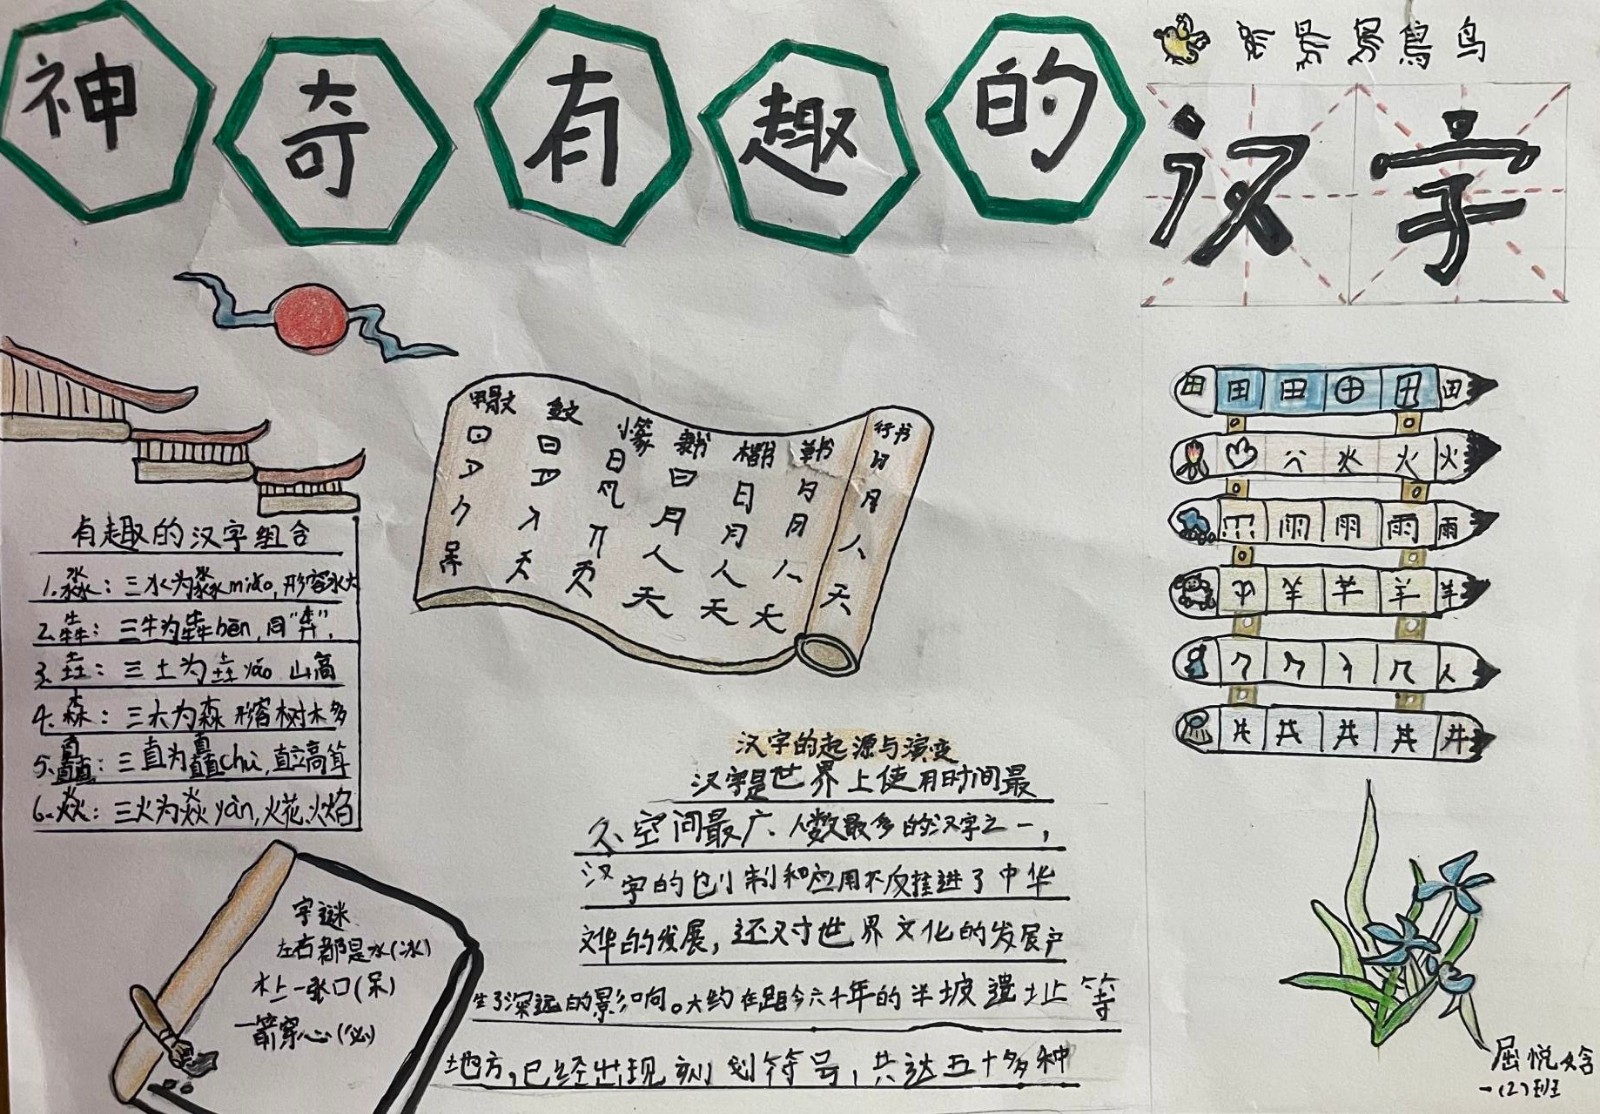 神奇有趣的
汉字
鳥 鸟
有趣的汉字组合
1.淼：三水为淼miǎo,形容水大
2.犇：三牛为犇bēn,同"奔",
3.垚：三土为垚yáo 山高
4.森：三木为森 形容树木多
5.矗：三直为矗chù,直立高耸
6.焱：三火为焱yàn,火花,火焰
甲骨文 金文 小篆 隶书 楷书 草书 行书
日 日 日 日 日 日 日
月 月 月 月
人 人 人 人
天 天 天 天
田 田 田 田 田
火 火
雨 雨 雨
羊 羊 羊 羊
人
井 井 井 井 井
汉字的起源与演变
汉字是世界上使用时间最
久、空间最广、人数最多的汉字之一，
汉字的创制和应用不仅推进了中华
文华的发展，还对世界文化的发展产
生了深远的影响。大约在距今六千年的半坡遗址等
地方，已经出现刻划符号，共达五十多种
字谜
左右都是水(冰)
木上一张口(呆)
一箭穿心(必)
屈悦
一(2)班